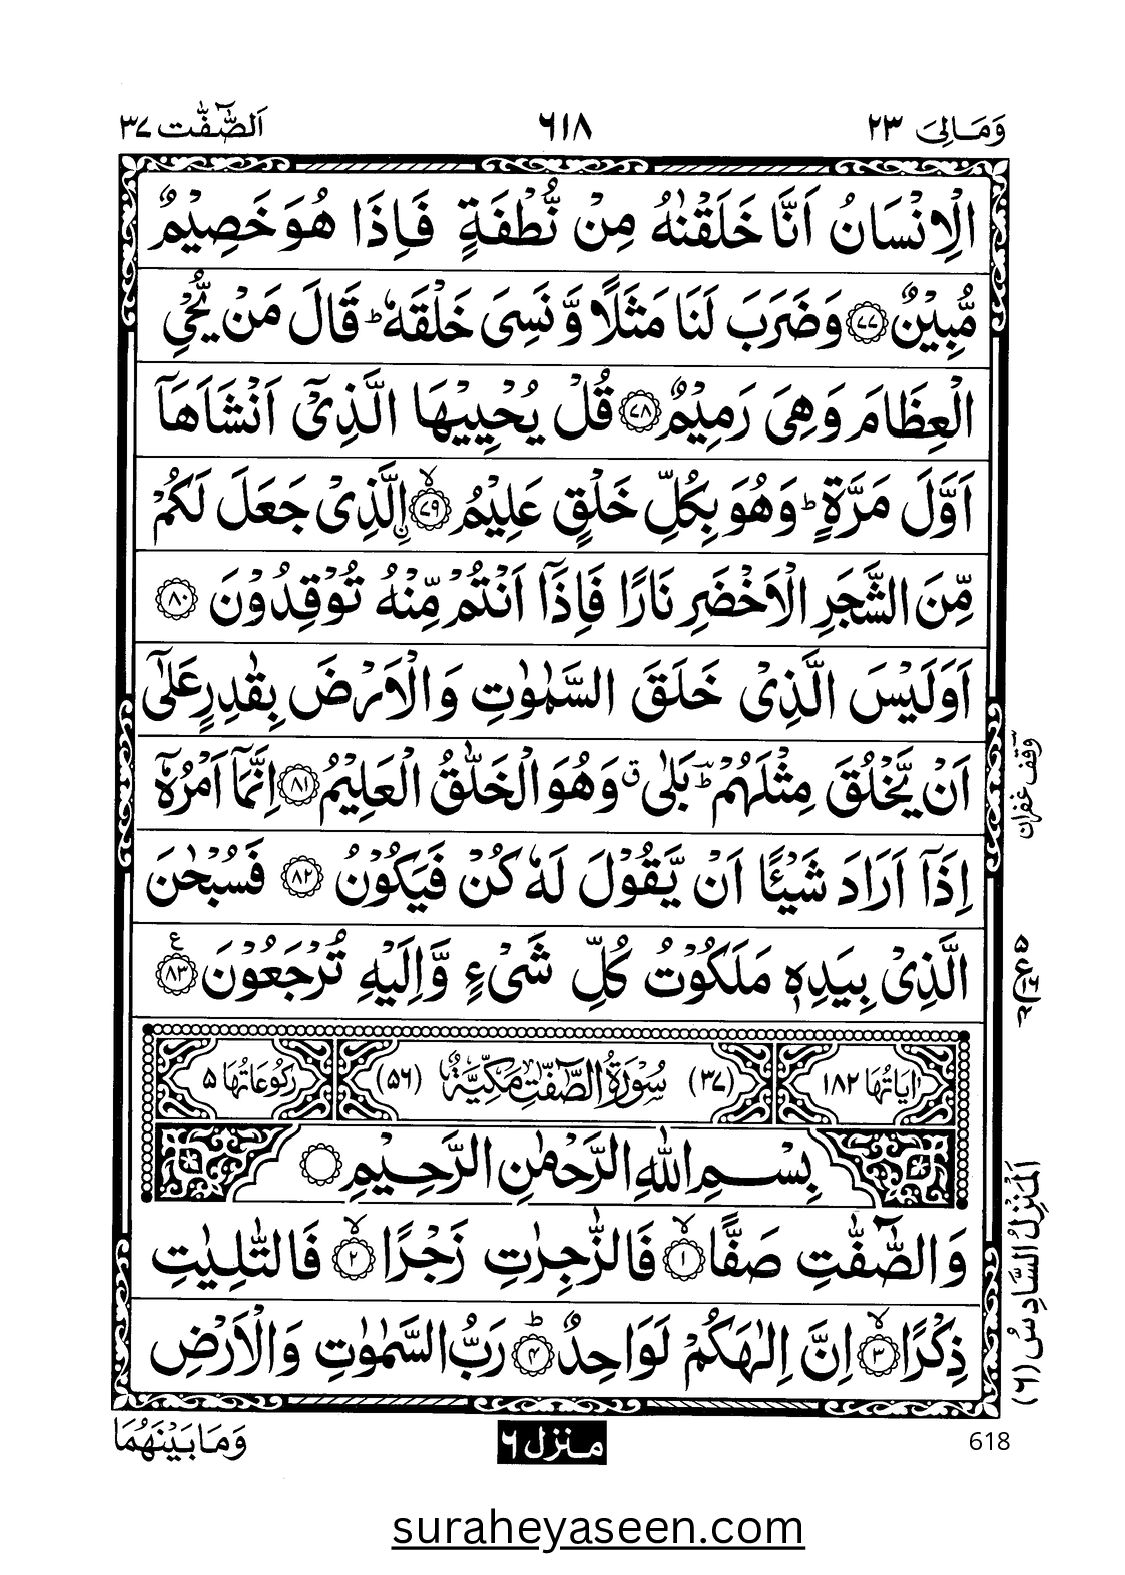 وَمَالِیَ ۲۳
۶۱۸
اَلصّٰٓفّٰت ۳۷
الْاِنْسَانُ اَنَّا خَلَقْنٰهُ مِنْ نُّطْفَةٍ فَاِذَا هُوَ خَصِیْمٌ
مُّبِیْنٌ ﴿۷۷﴾ وَضَرَبَ لَنَا مَثَلًا وَّ نَسِیَ خَلْقَهٗ ؕ قَالَ مَنْ یُّحْیِ
الْعِظَامَ وَهِیَ رَمِیْمٌ ﴿۷۸﴾ قُلْ یُحْیِیْهَا الَّذِیْۤ اَنْشَاَهَاۤ
اَوَّلَ مَرَّةٍ ؕ وَهُوَ بِكُلِّ خَلْقٍ عَلِیْمُ ۙ﴿۷۹﴾ اِلَّذِیْ جَعَلَ لَكُمْ
مِّنَ الشَّجَرِ الْاَخْضَرِ نَارًا فَاِذَاۤ اَنْتُمْ مِّنْهُ تُوْقِدُوْنَ ﴿۸۰﴾
اَوَلَیْسَ الَّذِیْ خَلَقَ السَّمٰوٰتِ وَالْاَرْضَ بِقٰدِرٍ عَلٰۤی
اَنْ یَّخْلُقَ مِثْلَهُمْ ؕ بَلٰی ۗ وَهُوَ الْخَلّٰقُ الْعَلِیْمُ ﴿۸۱﴾ اِنَّمَاۤ اَمْرُهٗۤ
اِذَاۤ اَرَادَ شَیْـًٔا اَنْ یَّقُوْلَ لَهٗ كُنْ فَیَكُوْنُ ﴿۸۲﴾ فَسُبْحٰنَ
الَّذِیْ بِیَدِهٖ مَلَكُوْتُ كُلِّ شَیْءٍ وَّاِلَیْهِ تُرْجَعُوْنَ ﴿۸۳﴾ ع
وقف غفران
۵ ع ۱۶ ۴
اٰیَاتُهَا ۱۸۲
(۳۷) سُوْرَةُ الصّٰٓفّٰتِ مَكِّیَّةٌ (۵۶)
رُكُوْعَاتُهَا ۵
بِسْمِ اللّٰهِ الرَّحْمٰنِ الرَّحِیْمِ
وَالصّٰٓفّٰتِ صَفًّا ۙ﴿۱﴾ فَالزّٰجِرٰتِ زَجْرًا ۙ﴿۲﴾ فَالتّٰلِیٰتِ
ذِكْرًا ۙ﴿۳﴾ اِنَّ اِلٰهَكُمْ لَوَاحِدٌ ؕ﴿۴﴾ رَبُّ السَّمٰوٰتِ وَالْاَرْضِ
اَلْمَنْزِلُ السَّادِسُ (۶)
وَمَا بَیْنَهُمَا
منزل ۶
618
suraheyaseen.com